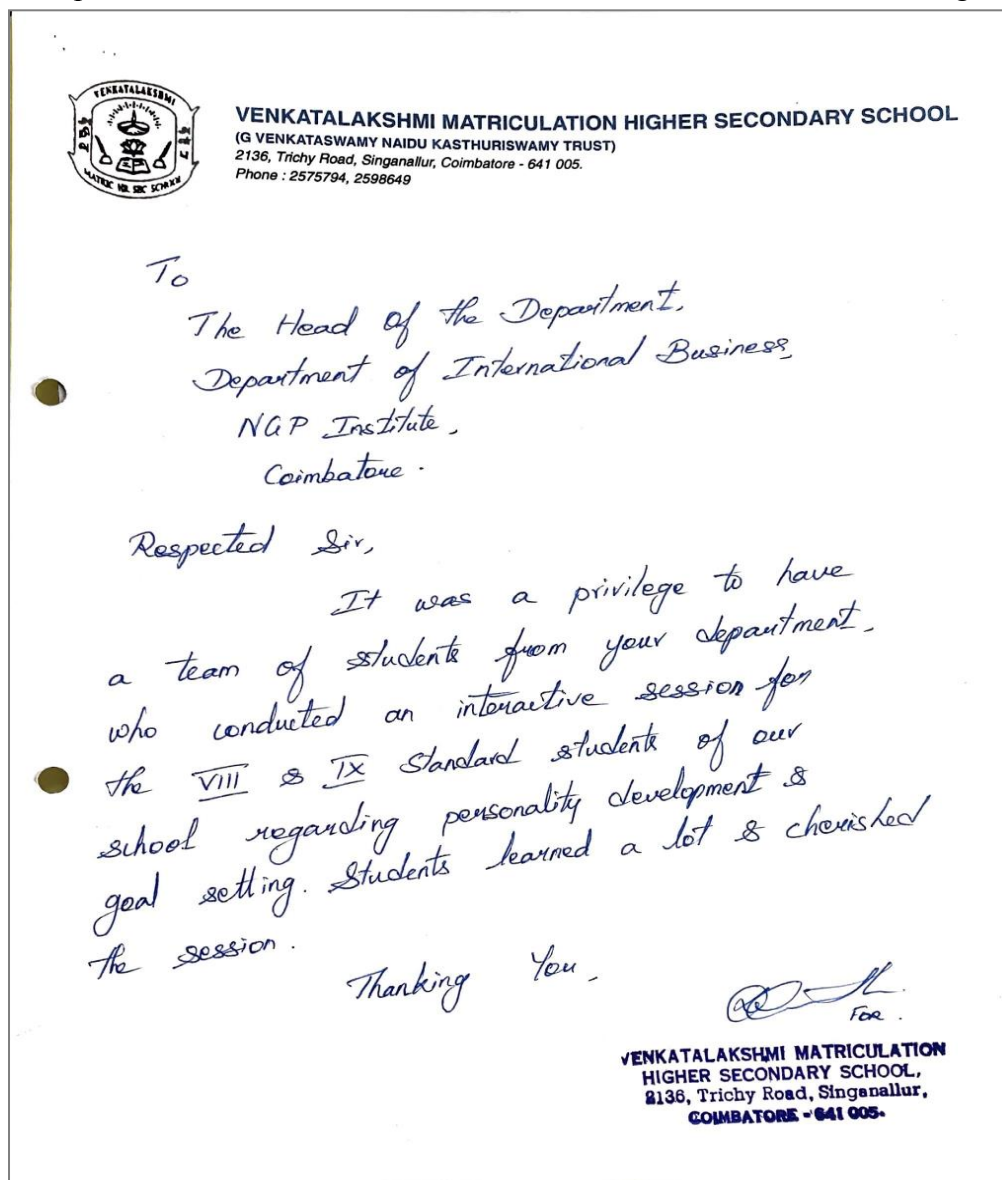 VENKATALAKSHMI
MATRIC HR. SEC SCHOOL
VENKATALAKSHMI MATRICULATION HIGHER SECONDARY SCHOOL
(G VENKATASWAMY NAIDU KASTHURISWAMY TRUST)
2136, Trichy Road, Singanallur, Coimbatore - 641 005.
Phone : 2575794, 2598649
To
The Head of the Department,
Department of International Business,
NGP Institute,
Coimbatore.
Respected Sir,
It was a privilege to have
a team of students from your department,
who conducted an interactive session for
the VIII & IX Standard students of our
school regarding personality development &
goal setting. Students learned a lot & cherished
the session.
Thanking You,
FOR.
VENKATALAKSHMI MATRICULATION
HIGHER SECONDARY SCHOOL,
2136, Trichy Road, Singanallur,
COIMBATORE - 641 005.